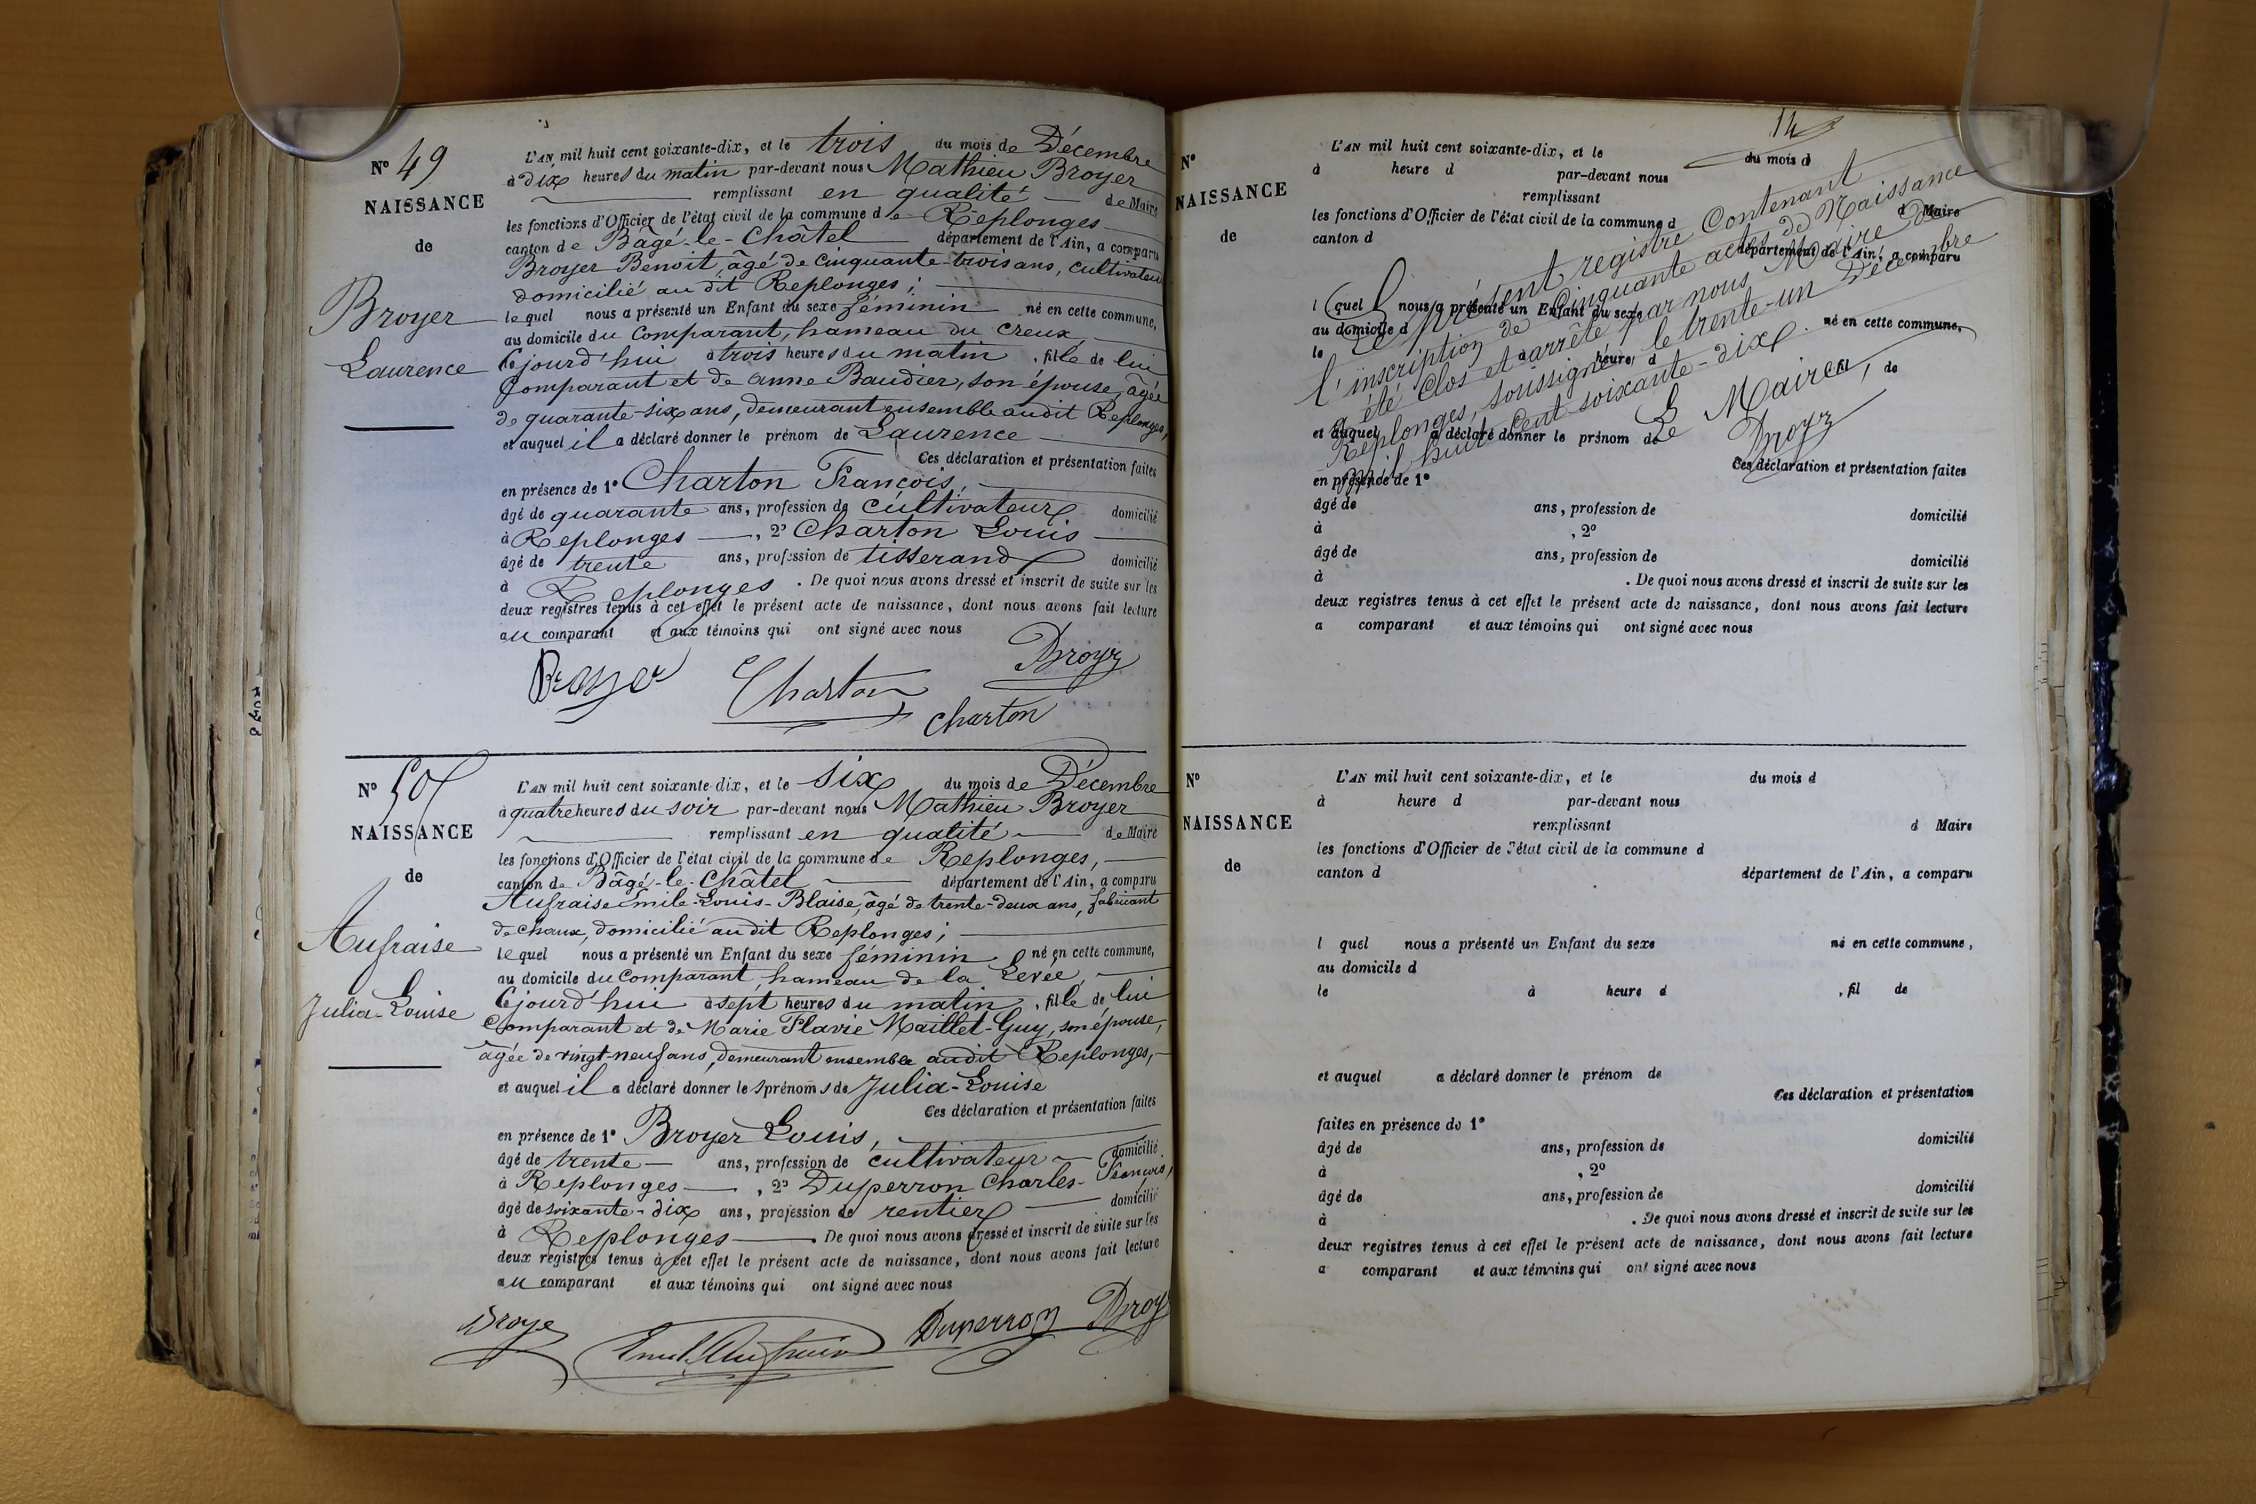 N° 49
NAISSANCE
de
Broyer
Laurence
L'AN mil huit cent soixante-dix, et le trois du mois de Décembre
à dix heures du matin par-devant nous Mathieu Broyer
remplissant en qualité de Maire
les fonctions d'Officier de l'état civil de la commune de Replonges
canton de Bâgé-le-Châtel département de l'Ain, a comparu
Broyer Benoit, âgé de cinquante-trois ans, cultivateur
domicilié au dit Replonges;
lequel nous a présenté un Enfant du sexe féminin né en cette commune,
au domicile du Comparant, hameau du Creux,
Cejourd'hui à trois heures du matin, fille de lui
Comparant et de Anne Baudier, son épouse, âgée
de quarante-six ans, demeurant ensemble audit Replonges,
et auquel il a déclaré donner le prénom de Laurence
Ces déclaration et présentation faites
en présence de 1° Charton François,
âgé de quarante ans, profession de cultivateur domicilié
à Replonges, 2° Charton Louis
âgé de trente ans, profession de tisserand domicilié
à Replonges. De quoi nous avons dressé et inscrit de suite sur les
deux registres tenus à cet effet le présent acte de naissance, dont nous avons fait lecture
au comparant et aux témoins qui ont signé avec nous
Broyer Charton Broyer
Charton
N° 50
NAISSANCE
de
Aufraise
Julia-Louise
L'AN mil huit cent soixante-dix, et le six du mois de Décembre
à quatre heures du soir par-devant nous Mathieu Broyer
remplissant en qualité de Maire
les fonctions d'Officier de l'état civil de la commune de Replonges,
canton de Bâgé-le-Châtel département de l'Ain, a comparu
Aufraise Émile-Louis-Blaise, âgé de trente-deux ans, fabricant
de chaux, domicilié au dit Replonges;
lequel nous a présenté un Enfant du sexe féminin né en cette commune,
au domicile du Comparant, hameau de la Levée,
Cejourd'hui à sept heures du matin, fille de lui
Comparant et de Marie Flavie Maillet-Guy, son épouse,
âgée de vingt-neuf ans, demeurant ensemble audit Replonges,
et auquel il a déclaré donner les prénoms de Julia-Louise
Ces déclaration et présentation faites
en présence de 1° Broyer Louis,
âgé de trente ans, profession de cultivateur domicilié
à Replonges, 2° Duperron Charles-François,
âgé de soixante-dix ans, profession de rentier domicilié
à Replonges. De quoi nous avons dressé et inscrit de suite sur les
deux registres tenus à cet effet le présent acte de naissance, dont nous avons fait lecture
au comparant et aux témoins qui ont signé avec nous
Broyer Duperron Broyer
14
N°
NAISSANCE
de
L'AN mil huit cent soixante-dix, et le du mois d
à heure d par-devant nous
remplissant d Maire
les fonctions d'Officier de l'état civil de la commune d
canton d département de l'Ain, a comparu
l quel nous a présenté un Enfant du sexe né en cette commune,
au domicile d
le à heure d , fil de
et auquel a déclaré donner le prénom de
Ces déclaration et présentation faites
en présence de 1°
âgé de ans, profession de domicilié
à , 2°
âgé de ans, profession de domicilié
à . De quoi nous avons dressé et inscrit de suite sur les
deux registres tenus à cet effet le présent acte de naissance, dont nous avons fait lecture
a comparant et aux témoins qui ont signé avec nous
Le présent registre Contenant
l'inscription de Cinquante actes de Naissance
a été clos et arrêté par nous Maire de
Replonges, soussigné, le trente-un Décembre
mil huit cent soixante-dix.
Le Maire
Broyer
N°
NAISSANCE
de
L'AN mil huit cent soixante-dix, et le du mois d
à heure d par-devant nous
remplissant d Maire
les fonctions d'Officier de l'état civil de la commune d
canton d département de l'Ain, a comparu
l quel nous a présenté un Enfant du sexe né en cette commune,
au domicile d
le à heure d , fil de
et auquel a déclaré donner le prénom de
Ces déclaration et présentation
faites en présence de 1°
âgé de ans, profession de domicilié
à , 2°
âgé de ans, profession de domicilié
à . De quoi nous avons dressé et inscrit de suite sur les
deux registres tenus à cet effet le présent acte de naissance, dont nous avons fait lecture
a comparant et aux témoins qui ont signé avec nous